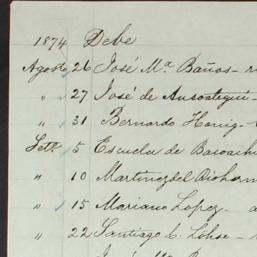 1874 Debe
Agosto 26 José Ma. Baños -
" 27 José de Ansostegui -
" 31 Bernardo Hönig -
Set. 5 Escuela de
" 10 Martinez del
" 15 Mariano Lopez.
" 22 Santiago C. Lohse -